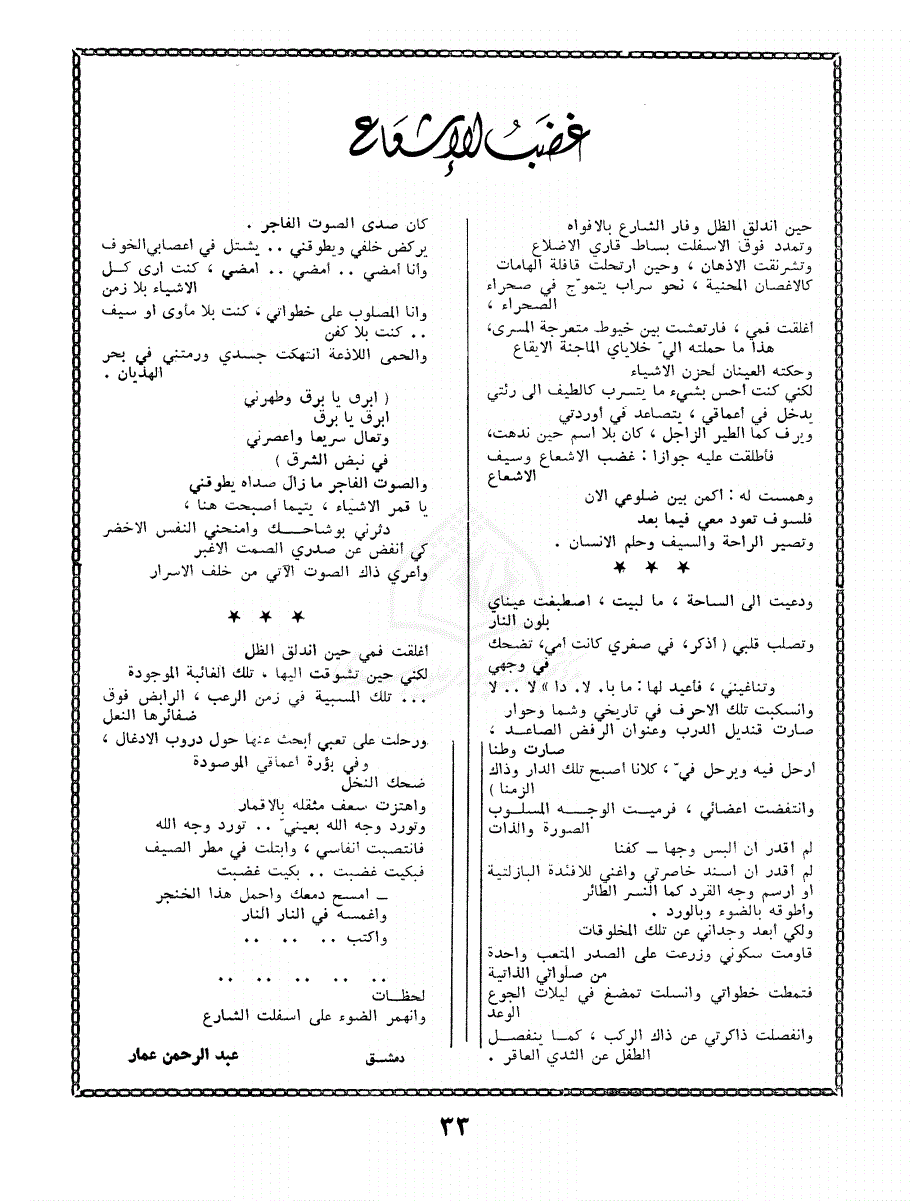 غضب الإشعاع
حين اندلق الظل وفار الشارع بالافواه
وتمدد فوق الاسفلت بساط قاري الاضلاع
وتشرنقت الاذهان ، وحين ارتحلت قافلة الهامات
كالاغصان المحنية ، نحو سراب يتموّج في صحراء
الصحراء ،
اغلقت فمي ، فارتعشت بين خيوط متعرجة المسرى،
هذا ما حملته اليّ خلاياي الماجنة الايقاع
وحكته العينان لحزن الاشياء
لكني كنت احس بشيء ما يتسرب كالطيف الى رئتي
يدخل في اعماقي ، يتصاعد في اوردتي
ويرف كما الطير الزاجل ، كان بلا اسم حين ندهت،
فأطلقت عليه جوازا : غضب الاشعاع وسيف
الاشعاع
وهمست له : اكمن بين ضلوعي الان
فلسوف تعود معي فيما بعد
وتصير الراحة والسيف وحلم الانسان .
★ ★ ★
ودعيت الى الساحة ، ما لبيت ، اصطبغت عيناي
بلون النار
وتصلب قلبي ( اذكر، في صغري كانت امي، تضحك
في وجهي
وتناغيني ، فأعيد لها : ما با. لا. دا » لا .. لا
وانسكبت تلك الاحرف في تاريخي وشما وحوار
صارت قنديل الدرب وعنوان الرفض الصاعـد ،
صارت وطنا
ارحل فيه ويرحل فيّ ، كلانا اصبح تلك الدار وذاك
الزمنا )
وانتفضت اعضائي ، فرميت الوجـه المسلـوب
الصورة والذات
لم اقدر ان البس وجها ــ كفنا
لم اقدر ان اسند خاصرتي واغني للافئدة البازلتية
او ارسم وجه القرد كما النسر الطائر
واطوقه بالضوء وبالورد .
ولكي ابعد وجداني عن تلك المخلوقات
قاومت سكوني وزرعت على الصدر المتعب واحدة
من صلواتي الذاتية
فتمطت خطواتي وانسلت تمضغ في ليلات الجوع
الوعد
وانفصلت ذاكرتي عن ذاك الركب ، كمـا ينفصـل
الطفل عن الثدي العاقر .
كان صدى الصوت الفاجر .
يركض خلفي ويطوقني .. يشتل في اعصابي الخوف
وانا امضي .. امضي .. امضي ، كنت ارى كـل
الاشياء بلا زمن
وانا المصلوب على خطواتي ، كنت بلا مأوى او سيف
.. كنت بلا كفن
والحمى اللاذعة انتهكت جسدي ورمتني في بحر
الهذيان .
( ابرق يا برق وطهرني
ابرق يا برق
وتعال سريعا واعصرني
في نبض الشرق )
والصوت الفاجر ما زال صداه يطوقني
يا قمر الاشياء ، يتيما أصبحت هنا ،
دثرني بوشاحـك وامنحني النفس الاخضر
كي انفض عن صدري الصمت الاغبر
واعري ذاك الصوت الآتي من خلف الاسرار
★ ★ ★
اغلقت فمي حين اندلق الظل
لكني حين تشوقت اليها ، تلك الغائبة الموجودة
... تلك المسبية في زمن الرعب ، الرابض فوق
ضفائرها النعل
ورحلت على تعبي أبحث عنها حول دروب الادغال ،
وفي بؤرة اعماقي الموصودة
ضحك النخل
واهتزت سعف مثقله بالاقمار
وتورد وجه الله بعينيّ .. تورد وجه الله
فانتصبت انفاسي ، وابتلت في مطر الصيف
فبكيت غضبت .. بكيت غضبت
ــ امسح دمعك واحمل هذا الخنجر
واغمسه في النار النار
واكتب .. .. ..
.. .. .. .. ..
لحظـات
وانهمر الضوء على اسفلت الشارع
دمشـق
عبد الرحمن عمار
٣٣